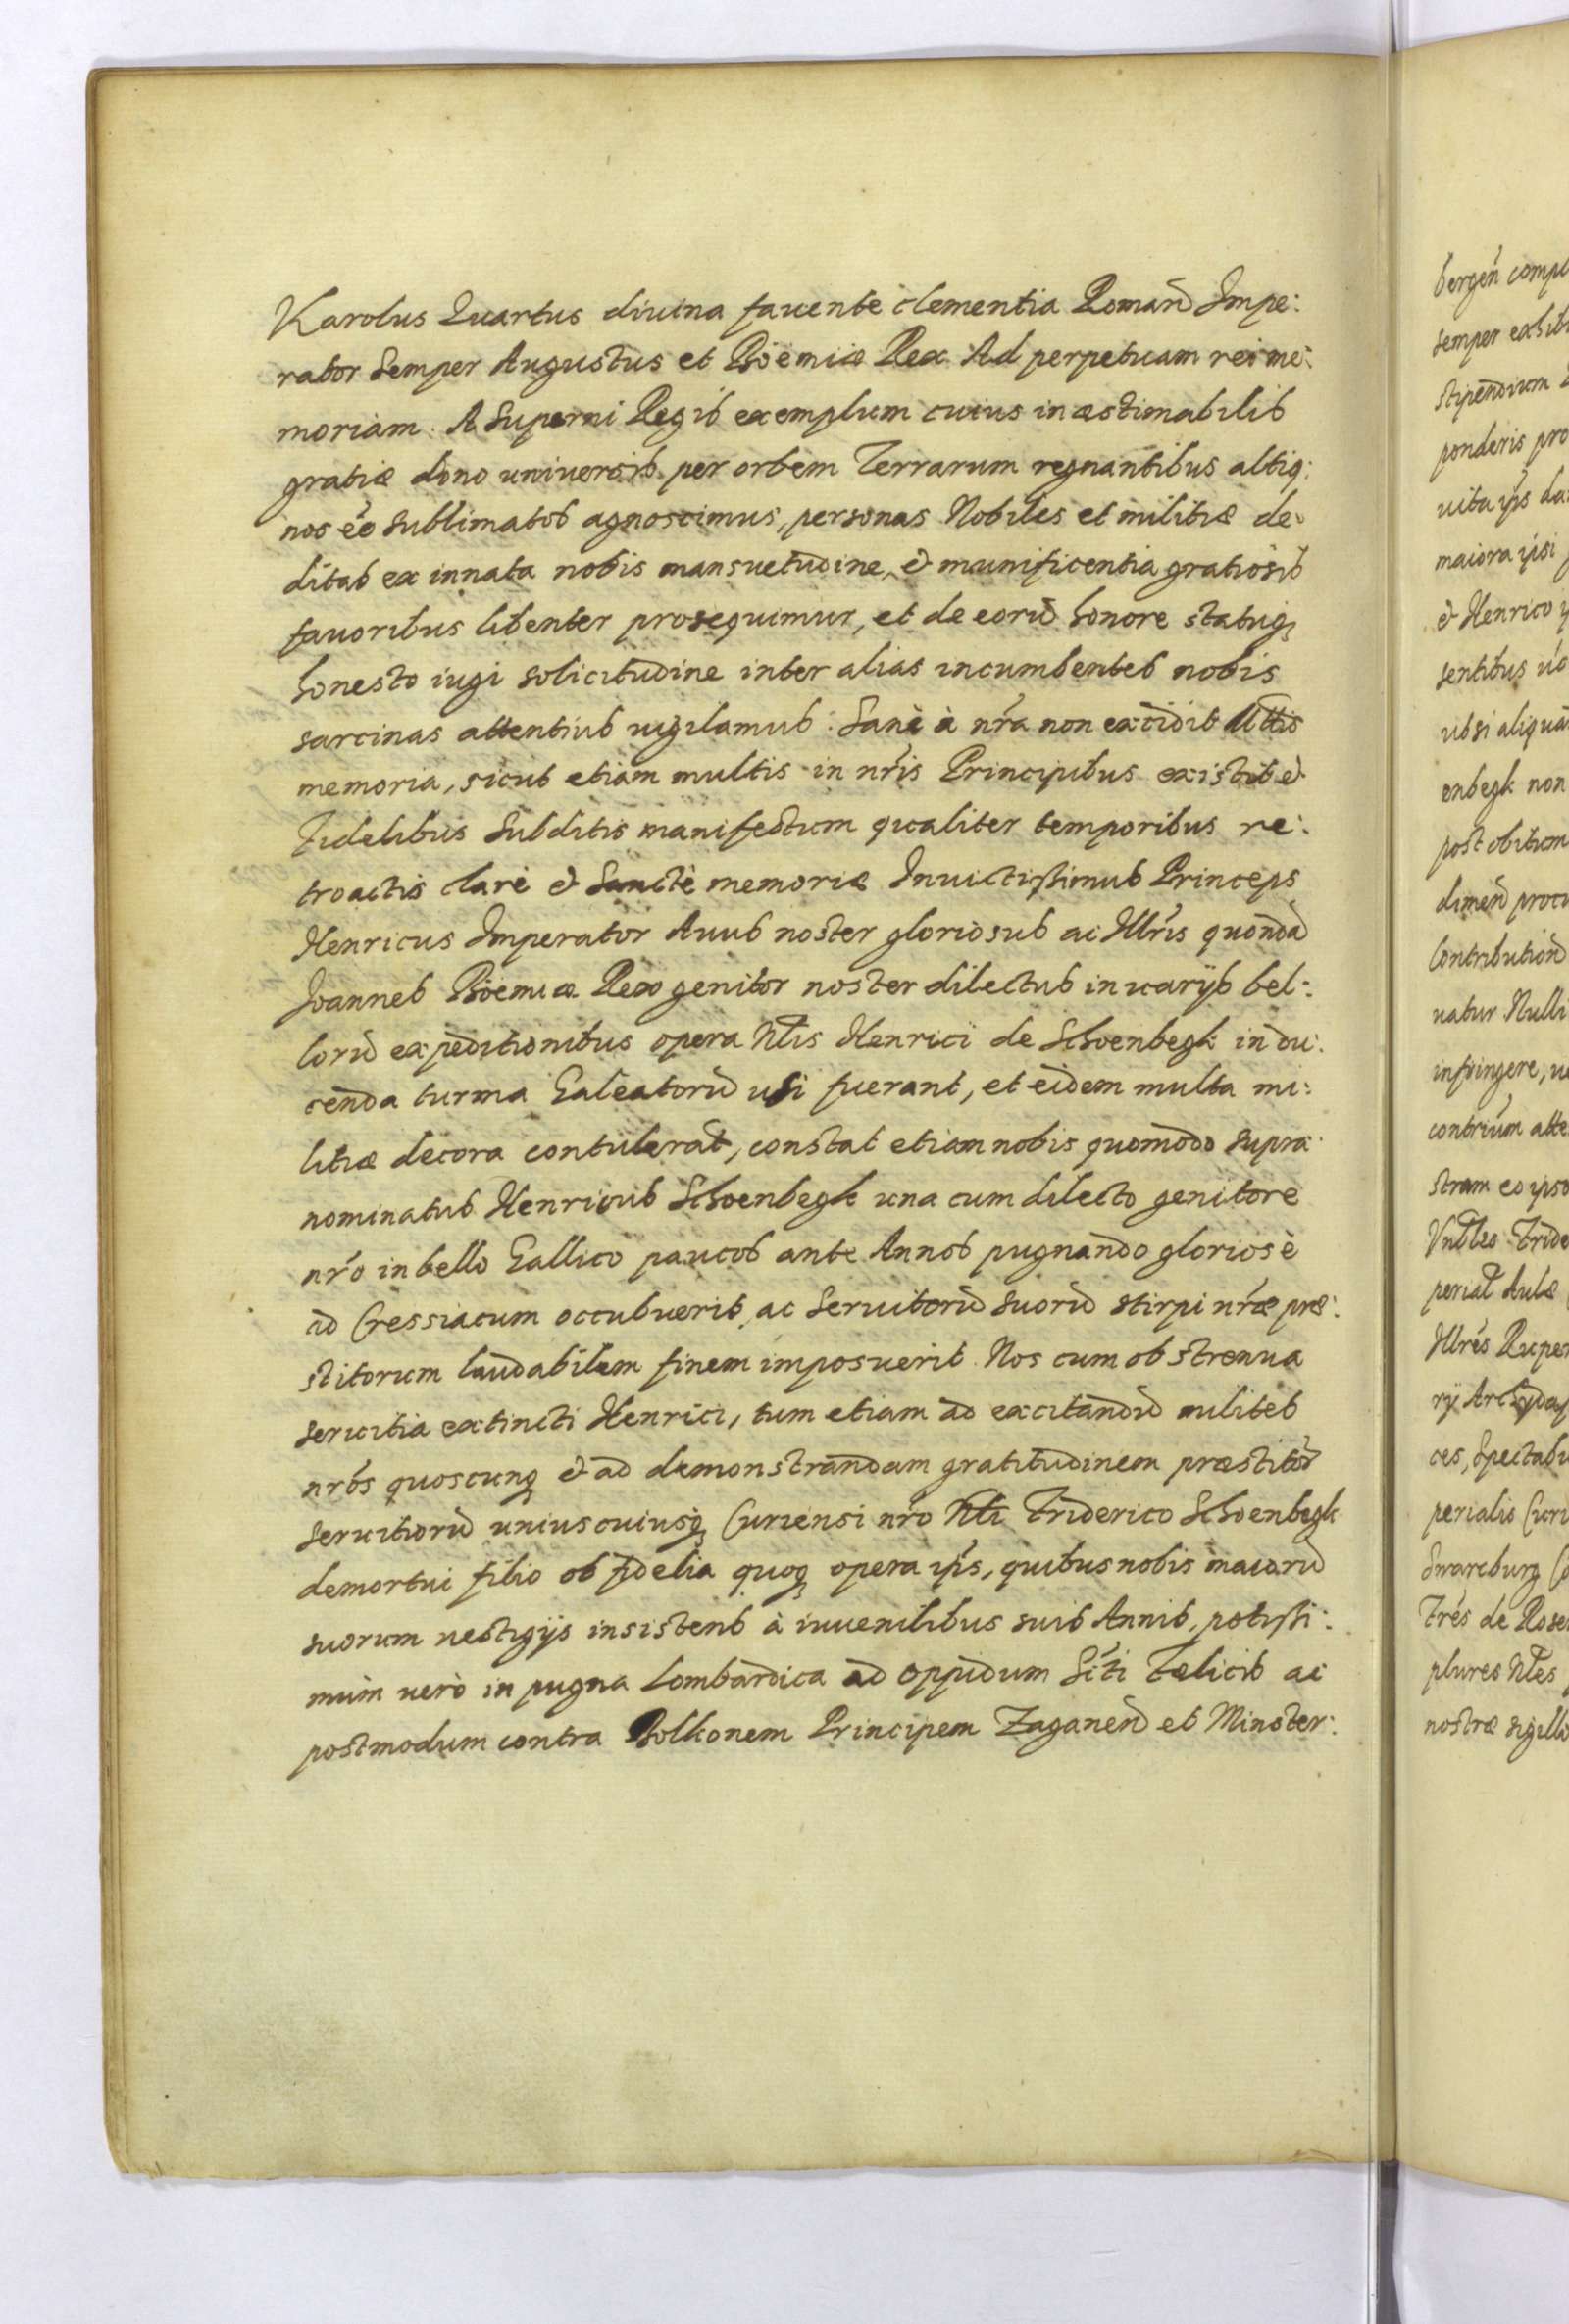 Karolus Quartus diuina fauente clementia Romanor̃ Impe:
rator Semper Augustus et Böemiæ Rex Ad perpetuam rei me:
moriam. A Superni Regis exemplum cuius inæstimabilis
gratiæ dono uniuersis per orbem Terrarum regnantibus altiq:
nos eo sublimatos agnoscimus, personas Nobiles et militiæ de:
ditas ex innata nobis mansuetudine, & munificentia gratiosis
fauoribus libenter prosequimur, et de eorũ honore statuq;
honesto iugi solicitudine inter alias incumbentes nobis
sarcinas attentius uigilamus. Sanè à nr̃a non excidit
memoria, sicut etiam multis in nr̃is Principibus existit &
Fidelibus Subditis manifestum qualiter temporibus re:
troactis claré & Sanctè memoriæ Inuictissimus Princeps
Henricus Imperator Auus noster gloriosus ac Illr̃is quondã
Joannes Böemiæ Rex genitor noster dilectus in uarijs bel:
lorũ expeditionibus opera Nl̃is Henrici de Schoenbegk in du:
cenda turma Galeatorũ usi fuerant, et eidem multa mi:
litiæ decora contulerãt, constat etiam nobis quomodo supra:
nominatus Henricus Schoenbegk una cum dilecto genitore
nr̃o in bello Gallico paucos ante Annos pugnando gloriosè
ad Cressiacum occubuerit, ac Seruitiorũ suorũ stirpi nr̃æ præ:
stitorum laudabilem finem imposuerit. Nos cum ob strenua
seruitia extincti Henrici, tum etiam ad excitandũ milites
nr̃os quoscunq; & ad demonstrandam gratitudinem præstitor̃
seruitiorũ uniuscuiusq; Curiensi nr̃o Nl̃i Friderico Schoenbegk
demortui filio ob fidelia quoq; opera ip̃s, quibus nobis maiorũ
suorum uestigijs insistens à iuuenilibus suis Annis, potissi:
mùm uerò in pugna Lombardica ad oppidum Sc̃ti Fælicis ac
postmodum contra Bolkonem Principem Zaganeñ et Minster:
bergeñ comp
semper exhib
stipendium
ponderis pro
uita ip̃s
maiora ipsi
& Henrico
sentibus
ubi si aliquã
enbegk non
post obitum
dimend
Contribution
uatur Nulli
infringere,
contrium atte
stram eo ipso
Fride
perial Aulæ
Illr̃es Ruper
rij Archidap
ces, Spectabi
perialis Curi
Swarcburg
Fr̃es de Rose
plures Nl̃es
nostræ sigillo